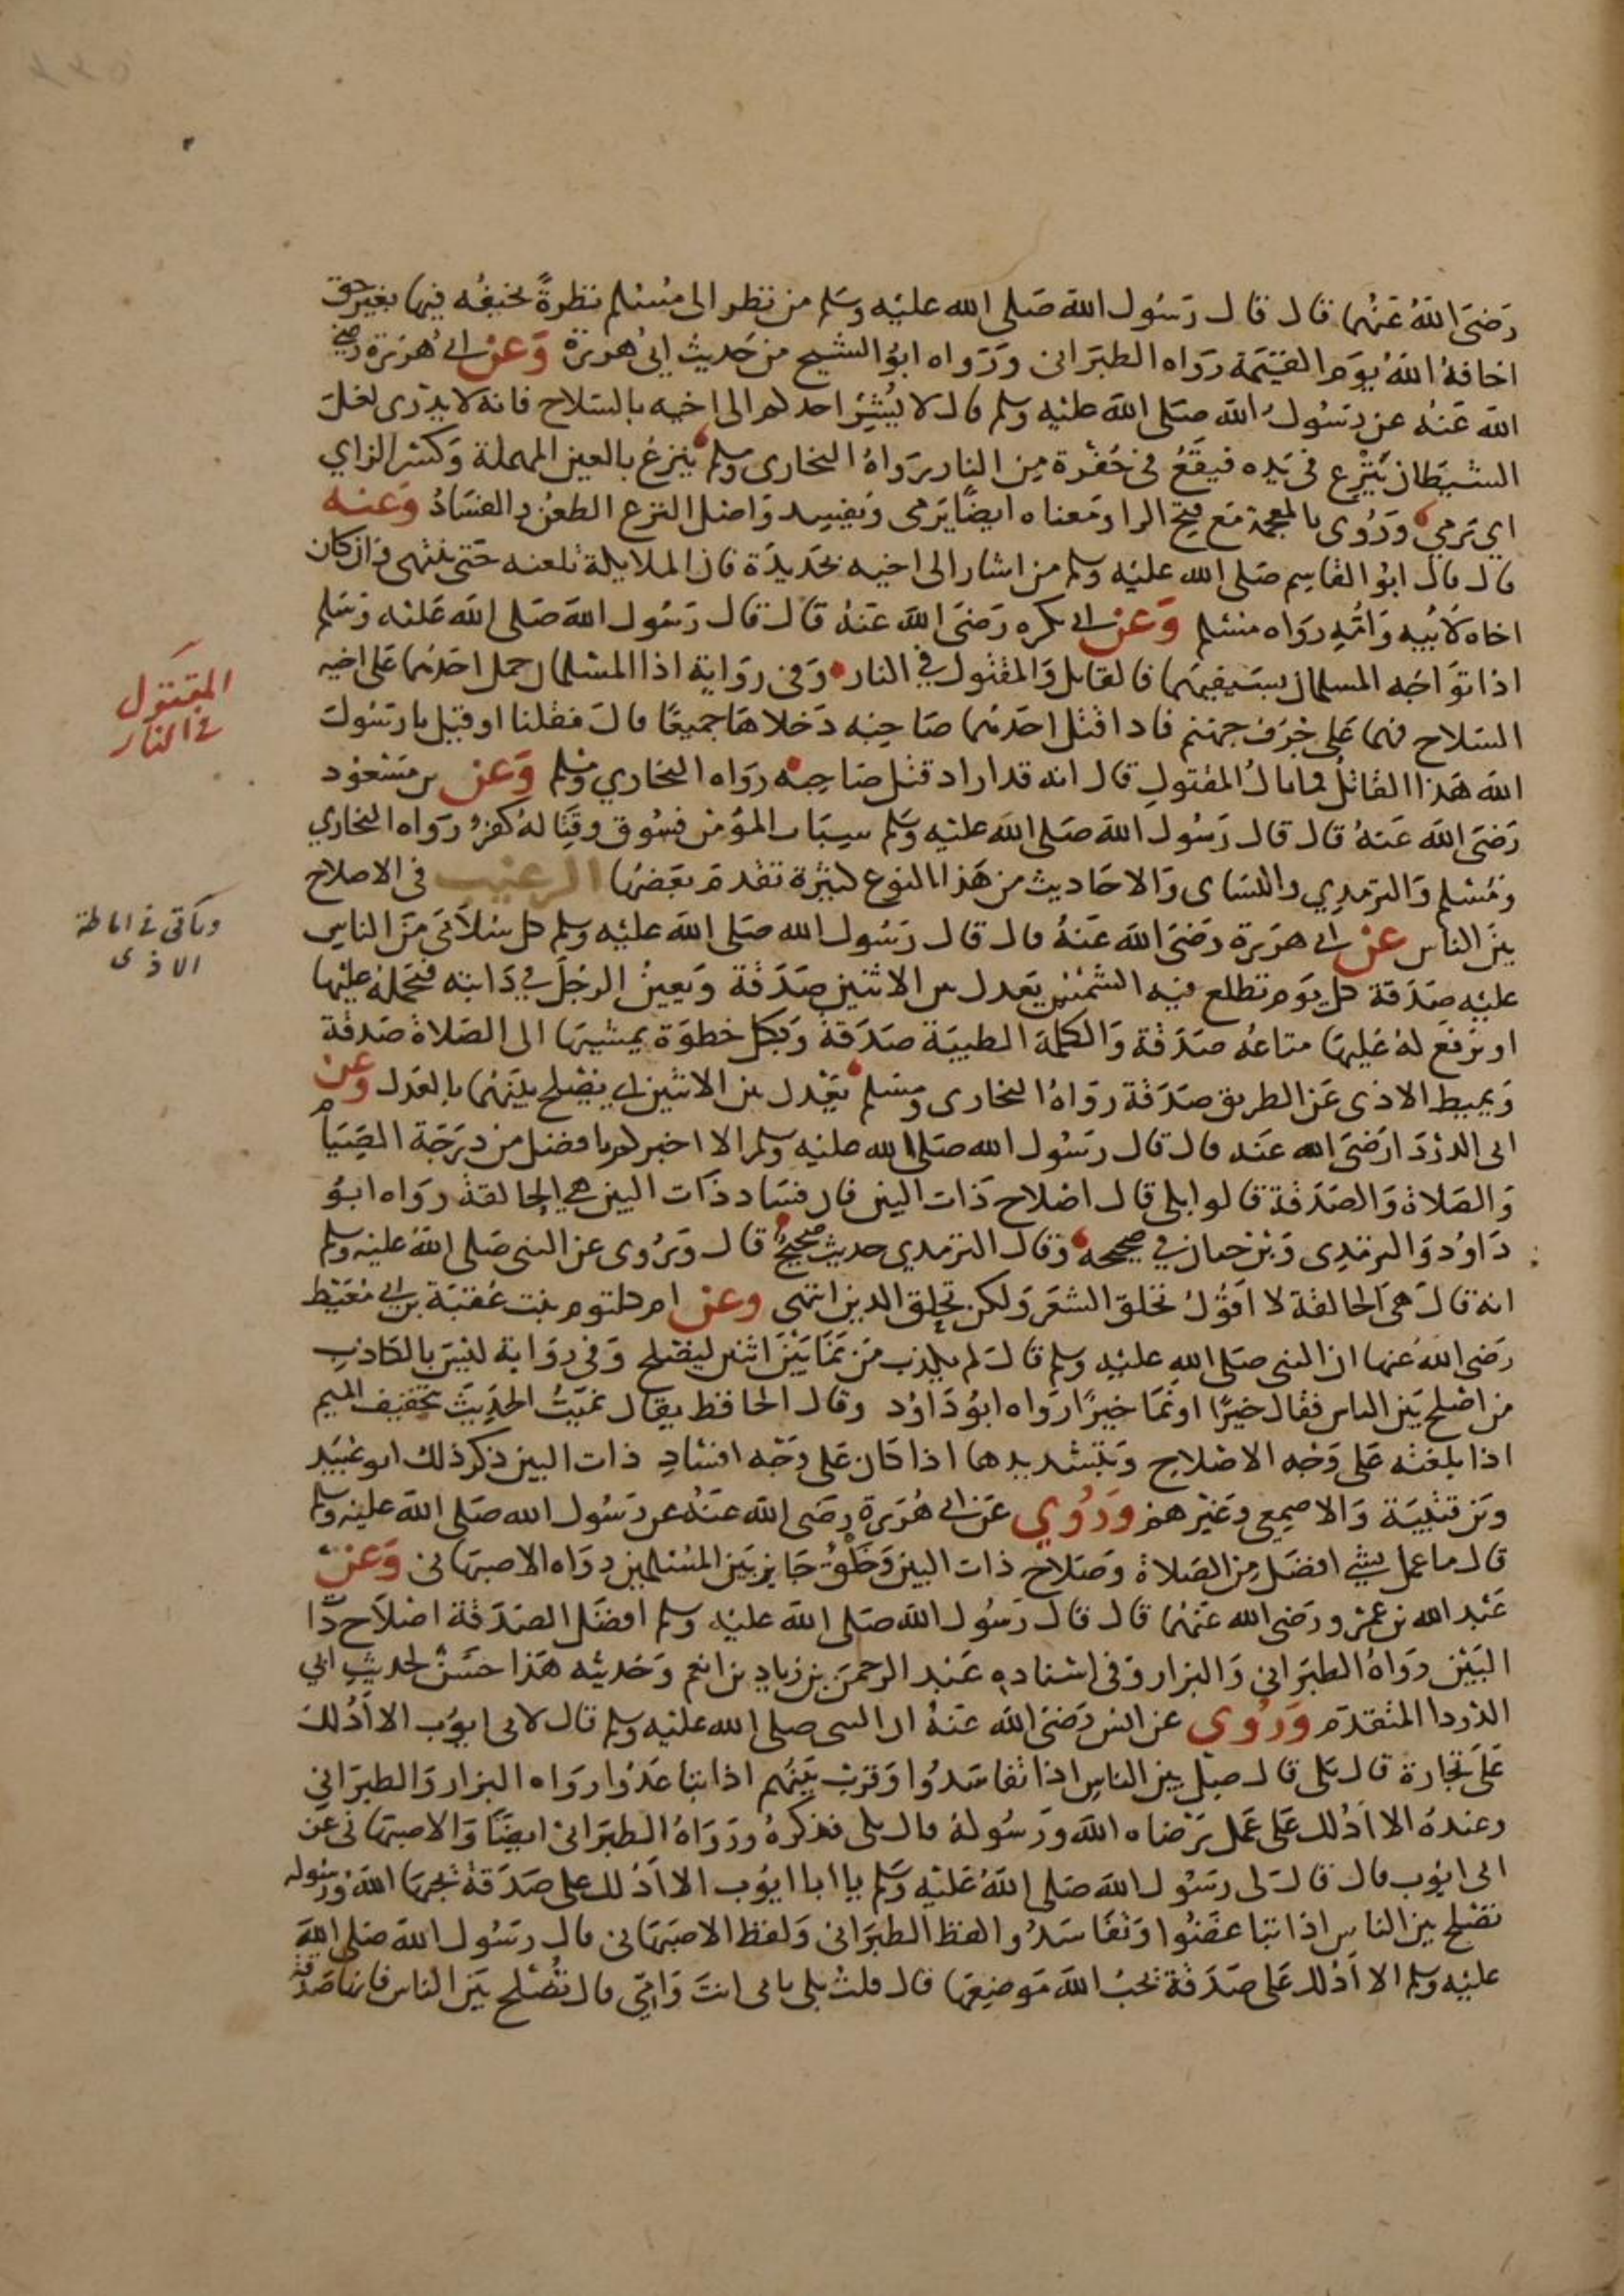 رَضىَ اللهُ عَنْهُما قال قال رَسُول الله صَلى الله عليْه وسَلم من نظر الى مُسْلم نظرةً يخيفُه فيها بغير حق
اخافهُ اللهُ يوَم القيٰمَة رَوَاه الطبَرانى وَرَوَاه ابوُ الشيح من حَديث ابى هُريرة وَعن ابى هُرَيرة رضى
الله عَنْهُ عن رسُول الله صَلى الله عليْه وسلم قال لا يُشِيْر احدكم الى اخيه بالسّلاح فانه لا يدرى لعَل
الشيطان يَنْزِع فى يَدِه فيقَعُ فى حُفْرة مِن النار رَوَاهُ البخارى ومسلم يَنزعُ بالعين المهملة وَكسْر الزاي
اي يَرمي وَرُوى بالمعجمة مَع فتح الزا ومَعناه ايضًا يَرمى وَيفسد وَاصل النزع الطعنُ والفسَادُ وَعنه
قال قال ابوُ القاسِم صَلى الله عليْه وسلم من اشار الى اخيه بحَديدَة فان الملايكة تلعنه حَتى ينتهى وان كان
اخاه لاَبيه وَامُّهِ رواه مسْلم وَعن ابى بكره رَضىَ الله عَنهُ قال قال رَسُول الله صَلى الله عَليْه وَسَلم
اذا توَاجَه المسلمان بسَيفيهما فالقاتل وَالمقتول في النار وَفى روَاية اذا المسْلمان حمل احَدُهما عَلى اخيه
السّلاح فهما عَلى جُرَف جهنم فاذا قتل احَدُهما صَاحِبه دَخلاهَا جميعًا قال فقلنا او قيل يا رسُول
الله هَذا القاتلُ فما بالُ المقتولِ قال انه قد اراد قتل صَاحِبه رواه البخاري ومسلم وَعن بن مَسْعُود
رَضىَ الله عَنهُ قال قال رَسُول الله صَلى الله عليْه وَسَلم سِبَاب المؤمن فسُوق وقِتَالهُ كفرٌ رواه البخاري
وَمُسْلم وَالترمدِي والنسَاى وَالاحَاديث من هَذا النوع كثيْرة تقدمَ بَعْضها الترغيب فى الاصلاح
بيْن الناس عن ابى هرَيرة رَضىَ الله عَنهُ قال قال رَسُول الله صَلى الله عليْه وسلم كل سُلاَمَى مَن الناس
عليْه صَدَقة كل يَوم تطلع فيْه الشمْسُ يَعدل بين الاثنين صَدَقة وَيعينُ الرجُل في دَابته فيحْملهُ عليْها
او يَرفع لهُ عَليهَا متاعهُ صَدَقة وَالكلمة الطيبَة صَدَقة وَبكل خطوَة يمشيهَا الى الصَلاة صَدقة
وَيميط الاذى عَن الطريق صَدَقة روَاهُ البخارى ومسلم يَعْدل بين الاثنين اى يصْلح بيْنهُما بالعَدل وعن
ابى الدَرْدَا رَضىَ الله عَنه قال قال رسُول الله صَلى الله عليْه وسلم الا اخبركم بافضل من درَجَة الصّيَام
وَالصَلاة وَالصَدَقة قالوا بلى قال اصْلاح ذَات البين فان فسَاد ذَات البين هى الحالقة روَاه ابوُ
دَاوُد وَالترمدِى وَبْن حبان في صحيحه وَقال الترمدي حديث صحيحٌ قال وَيُروى عن النبى صَلى الله عليْه وسلم
انه قال هىَ الحالقة لا اَقُوْلُ تحَلق الشعَر وَلكن تحلق الدين انتهى وعن ام كلثوم بنت عُقبَة بن ابي مُعَيْط
رَضى الله عنها ان النبى صَلى الله عليْه وسلم قال لم يكذب مَن نَمَا بَيْن اثنين ليصْلح وَفى روَاية ليْس بالكاذب
من اصْلح بَين الناس فقال خيرًا او نَمَا خيرًا رَواه ابوُ دَاوُد وقال الحافظ يقال نَميَتُ الحَدِيث بتخفيف الميم
اذا بلغته عَلى وَجْه الاصْلاح وَبتشديدها اذا كان عَلى وَجْه افسَادِ ذات البين ذكر ذلك ابو عُبَيْد
وَبن قتَيْبَة وَالاصمعِى وَغيْرهمْ وَرُوي عَن ابى هُرَيرة رضى الله عنهُ عن رسُول الله صَلى الله عليْه وسلم
قال ما عمل شيْ افضَل مِن الصَلاة وصَلاح ذات البين وَخُلُقٌ جَايز بَين المسْلمين روَاه الاصبهَانى وَعن
عَبْد الله بن عمْرو رضى الله عَنهُما قال قال رَسُول الله صَلى الله عليْه وسلم افضَل الصَدَقة اصْلاَح ذا
البَيْن روَاهُ الطبَرانى وَالبزار وَفى اسناده عَبْد الرحمن بن زياد بن انعم وَحَديثه هَذا حَسَنٌ لحديثِ ابي
الدَردا المتقدّم وَرُوى عن انس رَضىَ الله عَنهُ ان النبى صلى الله عليْه وسلم قال لابى ايوُب الا اَدُلك
عَلى تجارة قال بَلى قال صِل بين الناسِ اذا تفاسَدوا وَقربْ بَينهم اذا تباعَدُوا روَاه البزار وَالطبرَاني
وعندهُ الا اَدُلك عَلى عَمل يَرْضاه الله وَرسُولهُ قال بلى فذكرهُ وَرَوَاهُ الطبَرانىْ ايضًا وَالاصبهَانى عَن
ابى ايوُب قال قال لى رسُول الله صَلى اللهُ عَليْه وَسَلم يا ابا ايُوب الا اَدُلك على صَدَقة يُحبهَا الله وَرسُوله
تصْلح بين الناس اذا تباغضُوا وَتفاسَدُوا لفظ الطبَرانى وَلفظ الاصبَهَانى قال رسُول الله صَلى الله
عليْه وسلم الا اَدُلك عَلى صَدَقة يُحبُ الله مَوضِعهَا قال قلتُ بلى بابى انتَ وَامّى قال تُصْلح بَين الناس فانها صَدقة
المقتول
فى النار
وياتى فى اماطة
الاذى